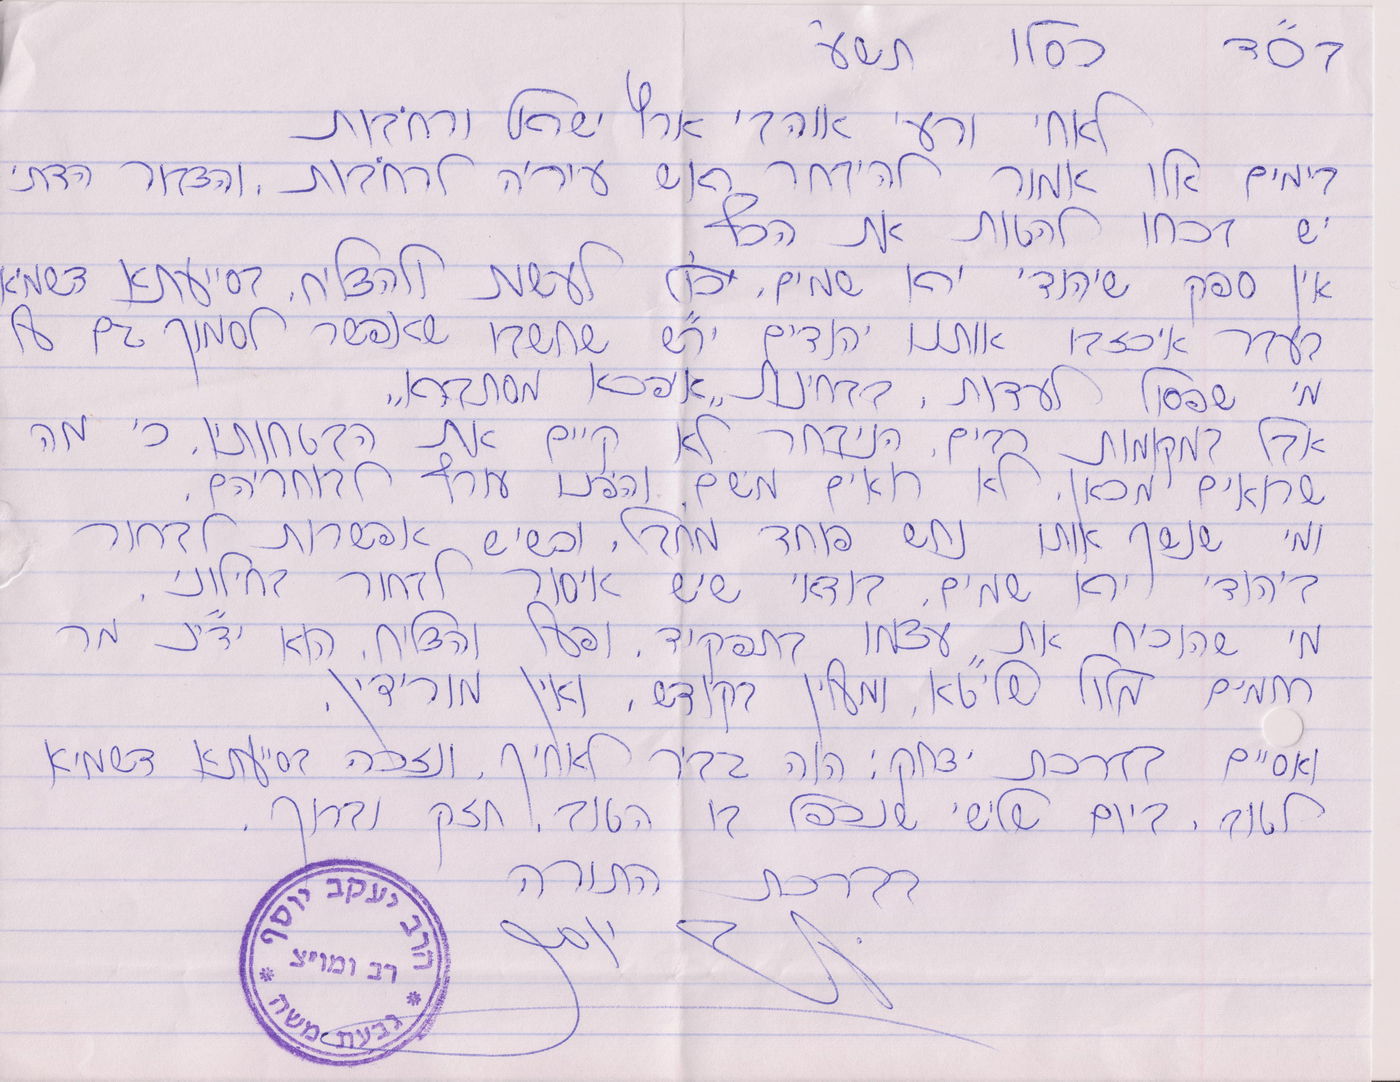 בס"ד כסלו תשע'
לאחי ורעי אוהבי ארץ ישראל ורחובות
בימים אלו אמור להיבחר ראש עירי'ה לרחובות, והצבור הדתי
יש בכחו להטות את הכף
אין ספק שיהודי ירא שמים, יכול לעשות ולהצליח, בסייעתא דשמיא
בעבר איכזבו אותנו יהודים יר"ש שחשבו שאפשר לסמוך גם על
מי שפסול לעדות, בבחינת "איפכא מסתברא"
אבל במקומות רבים, הניבחר לא קיים את הבטחותיו, כי מה
שרואים מכאן, לא רואים משם, והפנו עורף לבוחריהם.
ומי שנשך אותו נחש פוחד מחבל, וכשיש אפשרות לבחור
ביהודי ירא שמים, בודאי שיש איסור לבחור בחילוני.
מי שהוכיח את עצמו בתפקיד, ופעל והצליח, הוא ידי"נ מר
רחמים מלול שליט"א, ומעלין בקודש, ואין מורידין.
ואסיים בברכת יצחק: הוה גביר לאחיך, ונזכה בסיעתא דשמיא
לטוב, ביום שלישי שנכפל בו הטוב, חזק וברוך.
בברכת התורה
יעקב יוסף
הרב יעקב יוסף
רב ומו"צ
גבעת משה